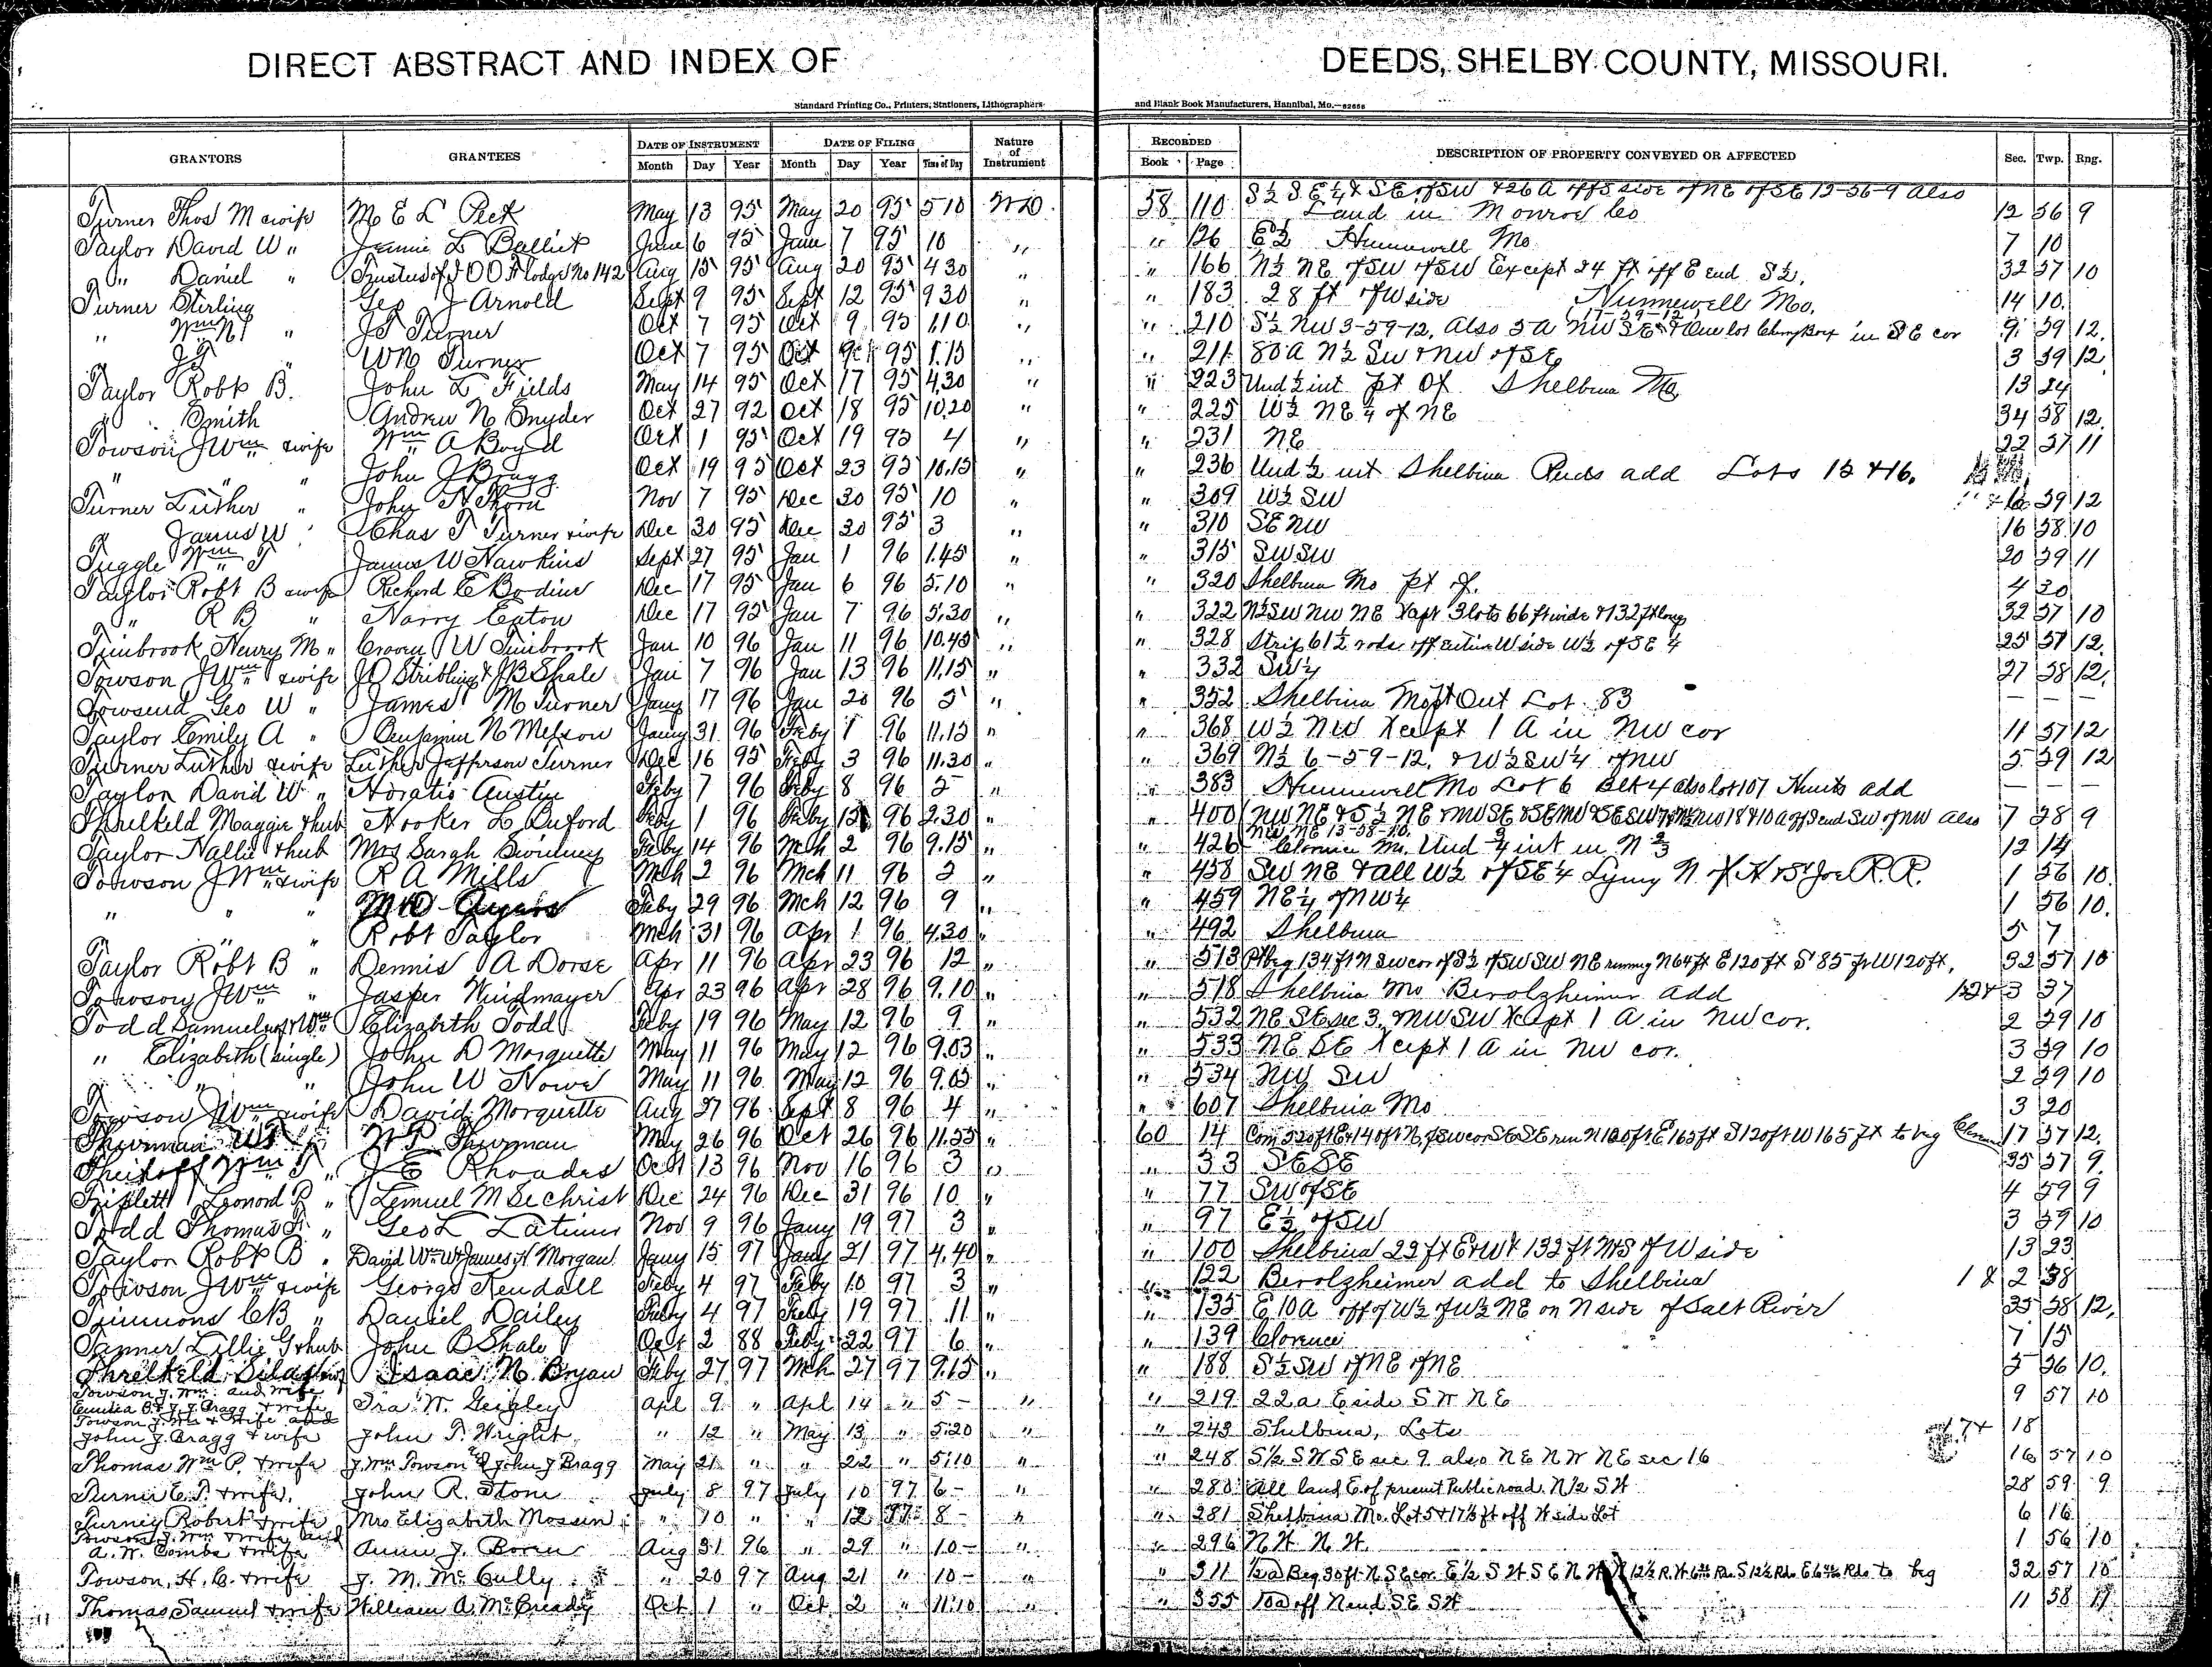 DIRECT ABSTRACT AND INDEX OF DEEDS, SHELBY COUNTY, MISSOURI.
Standard Printing Co., Printers, Stationers, Lithographers and Blank Book Manufacturers, Hannibal, Mo.—62656
GRANTORS GRANTEES DATE OF INSTRUMENT DATE OF FILING Nature of Instrument RECORDED DESCRIPTION OF PROPERTY CONVEYED OR AFFECTED Sec. Twp. Rng.
Month Day Year Month Day Year Time of Day Book Page
Turner Thos M & wife M E L Peck May 13 95 May 20 95 5 10 WD 58 110 S½ SE¼ & SE of SW & 26 A off S side of NE of SE 12-56-9 also Land in Monroe Co 12 56 9
Taylor David W " Jennie L Balliet June 6 95 June 7 95 10 " " 126 E½ Hunnewell Mo 7 10
" Daniel " Trustees of I O O F lodge No 142 Aug 15 95 Aug 20 95 4 30 " " 166 N½ NE of SW of SW Except 24 ft off E end S½. 32 57 10
Turner Stirling Geo J Arnold Sept 9 95 Sept 12 95 9 30 " " 183 28 ft of W side Hunnewell Mo. 14 10
" Wm N " J T Turner Oct 7 95 Oct 9 95 1.10 " " 210 S½ NW 3-59-12. Also 5 A NW SE 17-59-12 in SE cor 9 59 12
" J T " W N Turner Oct 7 95 Oct 9 95 1.15 " " 211 80 A N½ SW & NW of SE 3 59 12
Taylor Robt B. John L Fields May 14 95 Oct 17 95 4.30 " " 223 Und ½ int pt Of Shelbina Mo 13 24
" Smith Andrew N Snyder Oct 27 92 Oct 18 95 10.20 " " 225 W½ NE ¼ of NE 34 58 12
Towson J Wm & wife Wm A Boyd Oct 1 95 Oct 19 95 4 " " 231 NE 22 57 11
" " " John J Bragg Oct 19 95 Oct 23 95 10.15 " " 236 Und ½ int Shelbina Reids add Lots 15 & 16.
Turner Luther " John N Thorn Nov 7 95 Dec 30 95 10 " " 309 W½ SW 6 59 12
" James W " Chas T Turner & wife Dec 30 95 Dec 30 95 3 " " 310 SE NW 16 58 10
Tuggle Wm T James W Hawkins Sept 27 95 Jan 1 96 1.45 " " 315 SW SW 20 59 11
Taylor Robt B & wife Richard E Bodine Dec 17 95 Jan 6 96 5.10 " " 320 Shelbina Mo pt of 4 20
" R B " Harry Eaton Dec 17 95 Jan 7 96 5.30 " " 322 N½ SW NW NE Xcept 3 lots 66 ft wide & 132 ft long 32 57 10
Timbrook Henry M " Craven W Timbrook Jan 10 96 Jan 11 96 10.45 " " 328 Strip 61½ rods off entire W side W½ of SE 4 25 57 12
Towson J Wm & wife J D Stribling & J B Shale Jan 7 96 Jan 13 96 11.15 " " 332 SW¼ 27 58 12
Towsend Geo W " James M Turner Jany 17 96 Jan 20 96 5 " " 352 Shelbina Mo pt Out Lot 83 — — —
Taylor Emily A " Benjamin N Melson Jany 31 96 Feby 1 96 11.15 " " 368 W½ NW Xcept 1 A in NW cor 11 57 12
Turner Luther & wife Luther Jefferson Turner Dec 16 95 Feby 3 96 11.30 " " 369 N½ 6-59-12. & W½ SW¼ of NW 5 59 12
Taylor David W " Horatio Austin Feby 7 96 Feby 8 96 5 " " 383 Hunnewell Mo Lot 6 Blk 4 also lot 107 Hunts add — — —
Threlkeld Maggie & hub Hooker L Buford Feby 1 96 Feby 12 96 2.30 " " 400 NW NE & S½ NE & NW SE & SE NW & SE SW 7 & N½ NW 18 & 10 A off S end SW of NW also NW NE 13-58-10. 7 58 9
Taylor Nallie & hub Mrs Sarah Swinney Feby 14 96 Mch 2 96 9.15 " " 426 Clarence Mo. Und ¾ int in N ⅔ 12 14
Towson J Wm & wife R A Mills Mch 2 96 Mch 11 96 2 " " 458 SW NE & all W½ of SE ¼ Lying N of H & St Joe R.R. 1 56 10
" " " M D Ayars Feby 29 96 Mch 12 96 9 " " 459 NE¼ of NW¼ 1 56 10
" " " Robt Taylor Mch 31 96 Apr 1 96 4.30 " " 492 Shelbina 5 7
Taylor Robt B " Dennis A Dorse Apr 11 96 Apr 23 96 12 " " 513 Pt beg 134 ft N SW cor of S½ of SW SW NE running N 64 ft E 120 ft S 85 ft W 120 ft, 32 57 10
Towson J Wm " Jasper Windmayer Apr 23 96 Apr 28 96 9.10 " " 518 Shelbina Mo Berolzheimer add 1 2 & 3 37
Todd Samuel & Wm Elizabeth Todd Feby 19 96 May 12 96 9 " " 532 NE SE sec 3. NW SW Xcept 1 A in NW cor. 2 59 10
" Elizabeth (single) John D Marquette May 11 96 May 12 96 9.03 " " 533 NE SE Xcept 1 A in NW cor. 3 59 10
" " " John W Howe May 11 96 May 12 96 9.05 " " 534 NW SW 2 59 10
Towson J Wm & wife David Morquette Aug 27 96 Sept 8 96 4 " " 607 Shelbina Mo 3 20
Thurman W T " H P Thurman May 26 96 Oct 26 96 11.55 " 60 14 Com 520 ft E & 14 of t N of SW cor SE SE run N 120 ft E 165 ft S 120 ft W 165 ft to beg 17 57 12
Wm T " J E Rhoades Oct 13 96 Nov 16 96 3 " " 33 SE SE 35 57 9
Triplett Leonord R " Lemuel M Sechrist Dec 24 96 Dec 31 96 10 " " 77 SW of SE 4 59 9
Todd Thomas F. " Geo L Latimer Nov 9 96 Jany 19 97 3 " " 97 E½ of SW 3 59 10
Taylor Robt B " David Wm W & James H Morgan Jany 15 97 Jany 21 97 4.40 " " 100 Shelbina 22 ft E & W & 132 ft N & S of W side 13 23
Towson J Wm & wife George Kendall Feby 4 97 Feby 10 97 3 " " 122 Berolzheimer add to Shelbina 1 & 2 38
Timmons C B " Daniel Dailey Feby 4 97 Feby 19 97 11 " " 135 E 10 A off of W½ of W½ NE on N side of Salt River 35 58 12
Tanner Lillie G & hub John B Shale Oct 2 88 Feby 22 97 6 " " 139 Clarence 7 15
Threlkeld Silas & wife Isaac N. Bryan Feby 27 97 Mch 27 97 9.15 " " 188 S½ SW of NE of NE 5 56 10
Towson J. Wm. and wife
Emilia B & J. J. Bragg & wife Ira W. Geigley Apl 9 " Apl 14 " 5 - " " 219 22 a E side S W N E 9 57 10
Towson J. Wm & wife and
John J. Bragg & wife John P. Wright " 12 " May 13 " 5:20 " " 243 Shelbina, Lots 17 & 18
Thomas Wm P. & wife J. Wm Towson & John J Bragg May 21 " " 22 " 5:10 " " 248 S½ S W S E sec 9 also N E N W N E sec 16 16 57 10
Turner E. P. & wife. John R. Stone July 8 97 July 10 97 6 - " " 280 All land E of present Public road N½ S W 28 59 9
Turney Robert & wife Mrs Elizabeth Mossin " 10 " " 12 97 8 - " " 281 Shelbina Mo. Lot 5 & 17½ ft off W side Lot 6 16
Towson J. Wm & wife and
A. W. Combs & wife Annie J. Boren Aug 31 96 " 29 " 10 - " " 296 N W N W 1 56 10
Towson, H. C. & wife J. M. McCully " 20 97 Aug 21 " 10 - " " 311 ½ a Beg 30 ft N S E cor E½ S W S E N W N 12½ R. W 6 Rds S 12½ Rds E 6 Rds to beg 32 57 10
Thomas Samuel & wife William A. McCready Oct 1 " Oct 2 " 11:10 " " 355 10 a off N end S E S W 11 58